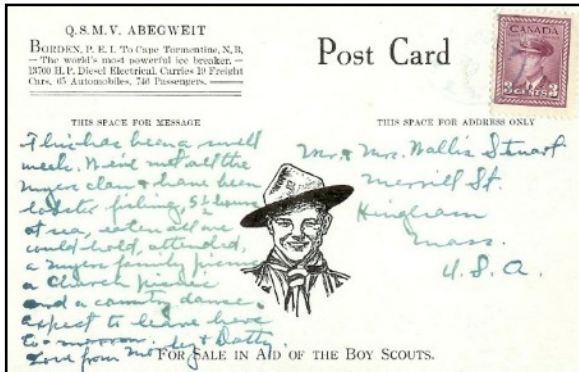 Q.S.M.V. ABEGWEIT
BORDEN, P. E. I. To Cape Tormentine, N, B,
— The world's most powerful ice breaker. —
13700 H. P. Diesel Electrical. Carries 19 Freight
Cars, 65 Automobiles, 746 Passengers.
Post Card
CANADA
3 CENTS 3
THIS SPACE FOR MESSAGE
This has been a swell
week. We've met all the
Myers clan & have been
lobster fishing, 5½ hours
at sea, eaten all we
could hold, attended,
a Myers family picnic
a Church picnic
and a country dance.
expect to leave here
to-morrow.
Love from & Dotty.
THIS SPACE FOR ADDRESS ONLY
Mr & Mrs. Wallis Stuart
Merrill St.
Hingham
Mass.
U.S.A.
FOR SALE IN AID OF THE BOY SCOUTS.